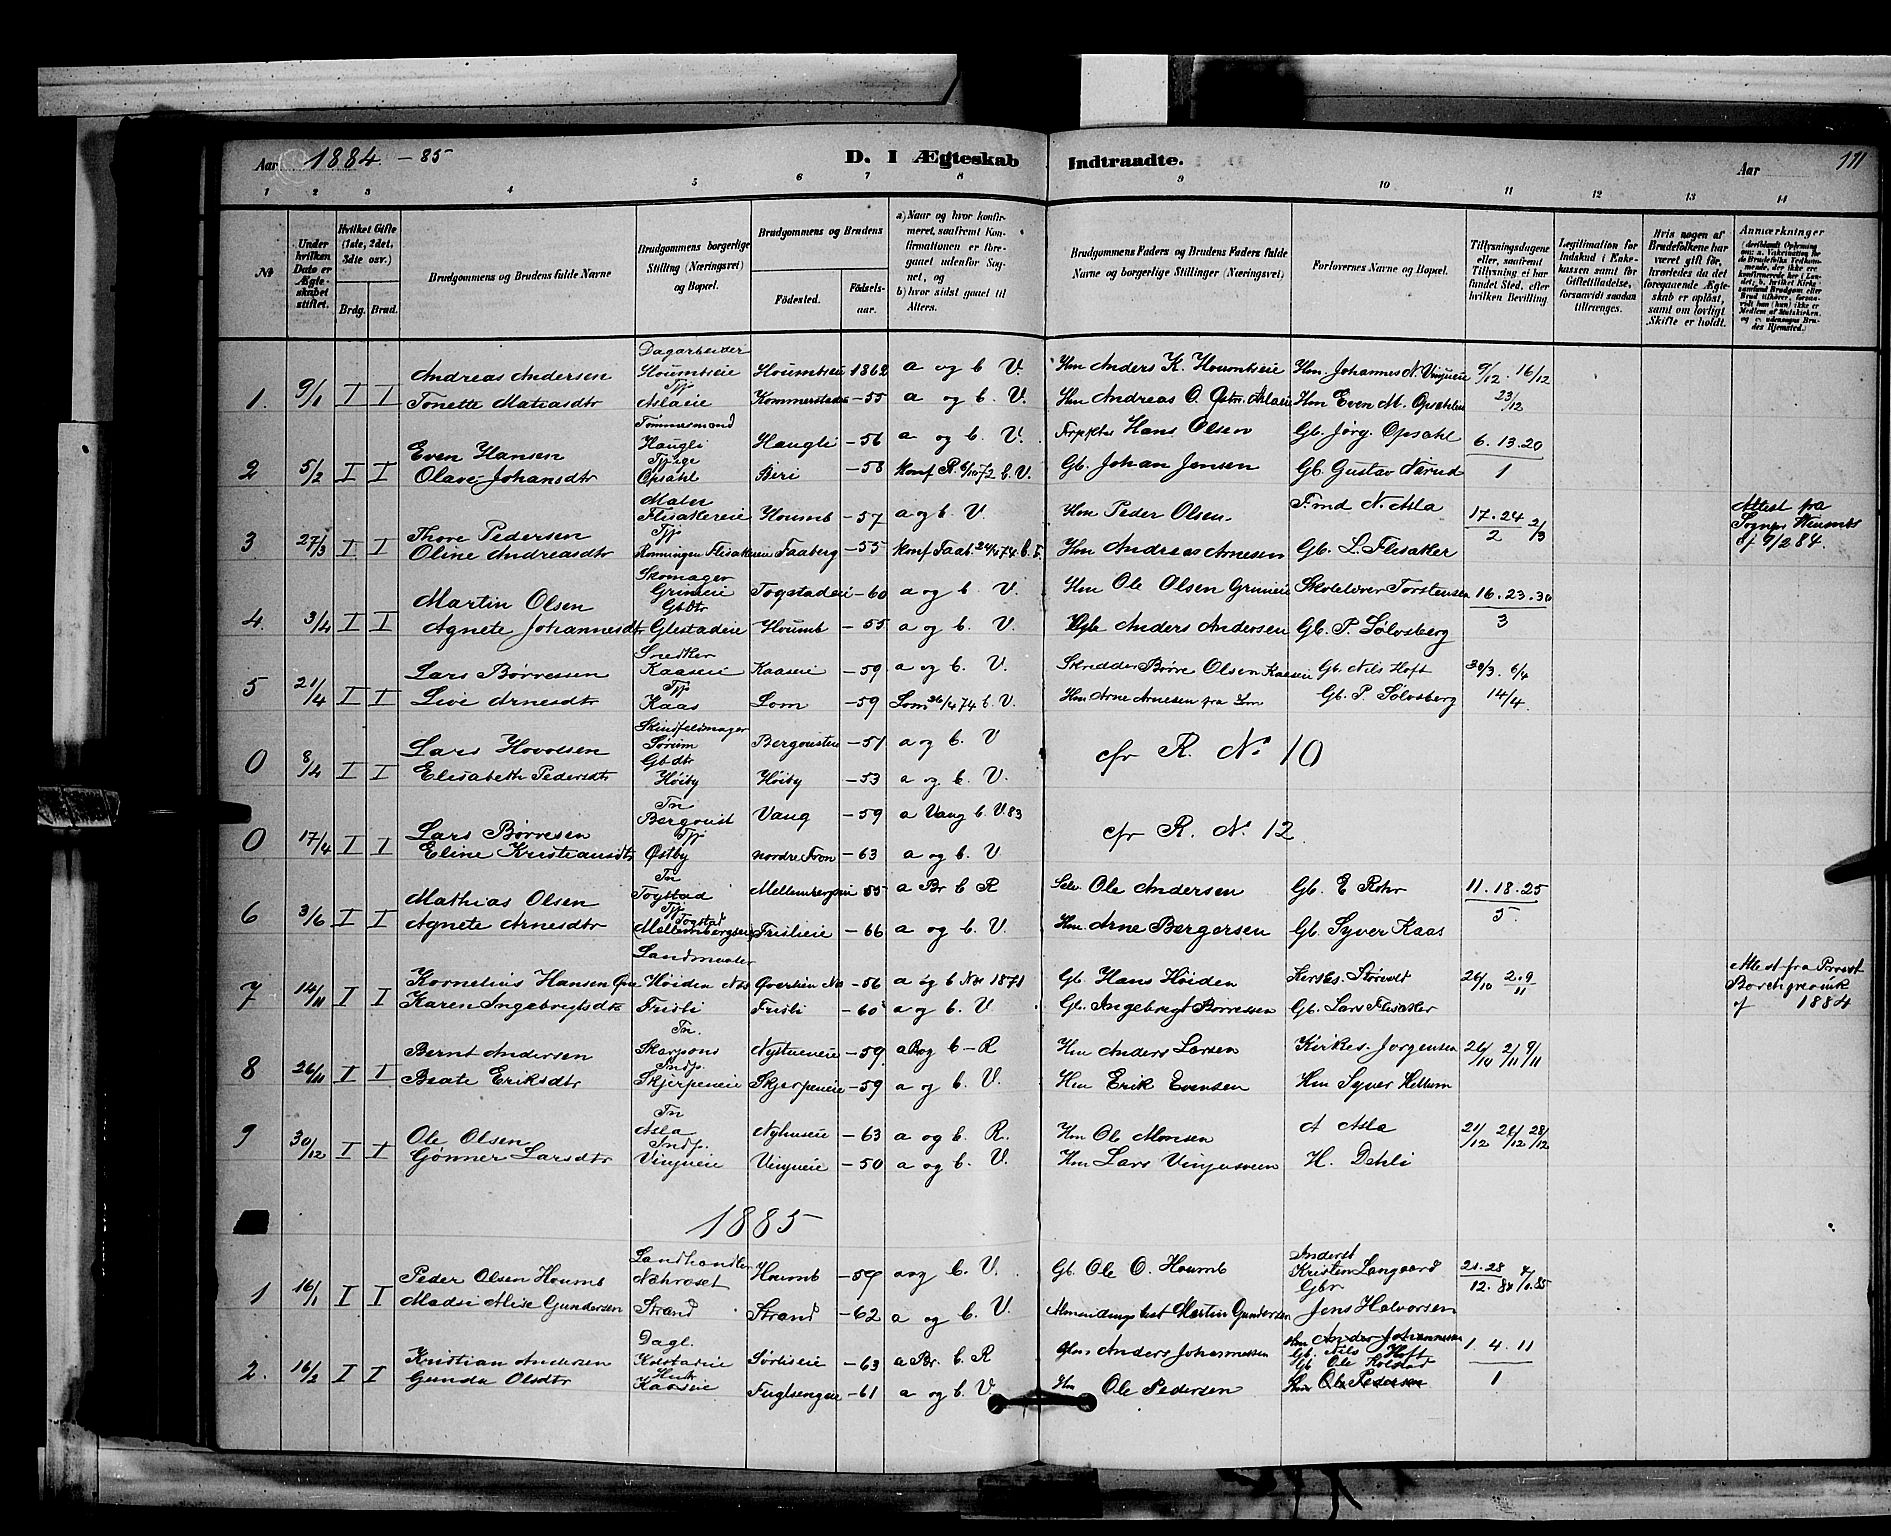 Aar 1884 - 85
D. I Ægteskab Indtraadte.
Aar 111
1 2 3 4 5 6 7 8 9 10 11 12 13 14
No
Under hvilken Dato er Ægteskabet stiftet.
Hvilket Gifte (1ste, 2det, 3die osv.)
Brdg. Brud.
Brudgommens og Brudens fulde Navne
Brudgommens borgerlige Stilling (Næringsvei) og Bopæl.
Brudgommens og Brudens
Födested.
Födsels-aar.
a) Naar og hvor konfirmeret, saafremt Konfirmationen er foregaaet udenfor Sognet, og
b) hvor sidst gaaet til Alters.
Brudgommens Faders og Brudens Faders fulde Navne og borgerlige Stillinger (Næringsvei)
Forlovernes Navne og Bopæl.
Tillysningsdagene eller, saafremt Tillysning ei har fundet Sted, efter hvilken Bevilling
Legitimation for Indskud i Enkekassen samt for Giftetilladelse, forsaavidt saadan tiltrænges.
Hvis nogen af Brudefolkene har været gift för, hvorledes da det foregaaende Ægteskab er oplöst, samt om lovligt Skifte er holdt.
Anmærkninger
Dagarbeider
Andreas Andersen Houmbseie Houmbseie 1862 a og b V. Hm Anders K. Houmbseie Hm. Johannes N. Vinjueie 9/12 . 16/12
Tpj
1. 9/1 I I Tonette Matiasdtr Aslaeie -55 a og b. V. Hm Even M. Opsahl 23/12
Tömmermand
Even Hansen Haugli Haugli -56 a og b V. Hans Olsen Gb. Jörg. Opsahl 6. 13. 20
2 5/2 I I Olave Johansdtr Opsahl Biri -58 b. V. Gb. Johan Jensen Gb. Gustav Nærud 1
Maler
Thore Pedersen Flisakereie Houmb -57 a og b V. Hm Peder Olsen. F.md N. Asla 17. 24 2/3
Tpj
3 27/3 I I Oline Andreasdtr Faaberg -55 Hm Andreas Arnesen Gb. L. Flisaker 2
Attest fra
af 9/2 84.
Skomager
Martin Olsen Grimeie Togstadeie -60 a og b. V. Hm Ole Olsen Grimeie Skolelærer Torstensen 16. 23. 30
Gbdtr
4. 3/4 I I Agnete Johannesdtr Glestadeie Houmb -55 a og b. V. Anders Andersen Gb. P. Sølvsberg 3
Snedker
Lars Børresen Kaaseie Kaaseie -59 a og b. V. Skrædder Børre Olsen Kaaseie Gb. Nils Hoft 30/3. 6/4
Tpj
5 21/4 I I Live Arnesdtr Kaas Lom -59 Lom 26/4 74 b. V. Hm Arne Arnesen fra Lom Gb. P. Sølvsberg 14/4.
Skindfeldmager
Lars Hovolsen Sørum -51 a og b. V cfr R. No 10
Gbdtr
0 8/4 I I Elisabeth Pedersdtr Høiby Høiby -53 a og b. V.
Tn
Lars Børresen Bergqvist Vang -59 a Vang b. V. 83 cfr R. No. 12
Tpj
0 17/4 I I Eline Kristiansdtr Østby nordre Fron -63 a og b. V
Tn
Mathias Olsen Togstad -55 a Br b R Selv. Ole Andersen Gb. E Rohr 11. 18. 25
Tpj Togstad
6 3/6 I I Agnete Arnesdtr Mellembergseie Frislieie -66 a og b. V. Hm. Arne Bergersen Gb. Syver Kaas 5.
Landmaaler
Kornelius Hansen Høiden Nes -56 a og b Nes 1871 Gb. Hans Høiden 26/10 2.9/11
7 14/11 I I Karen Ingebrigtsdtr Frisli Frisli -60 a og b. V Gb. Ingebrigt Børresen Gb. Lars Flisaker
Attest fra Provst
af 1884
Tn.
Bernt Andersen Skarpons Nystueneie -59 a R og b - R Hm Anders Larsen Kirkes. Jorgensen 26/10 2/11 9/11
Indp.
8 26/11 I I Beate Eriksdtr Skjerpeneie Skjerpeneie -59 a og b. V. Hm Erik Evensen Hm Syver Hellum
Tn
9 30/12 I I Ole Olsen Asla Nyhuseie -63 a og b. R. Hm Ole Monsen A Asla 21/12 26/12 28/12
Indp.
Gønner Larsdtr Vinjueie Vinjueie -50 a og b. V. Hm Lars Vinjusveen H. Dehli
1885
Landhandler
Peder Olsen Houmb Næhroset Houmb -59 a og b. V. Gb. Ole O. Houmb Kristen Langaard 21. 28 4/1 85
1 16/1 I I Madsi Alise Gundersen Strand Strand -62 a og b. V Martin Gundersen Jens Halvorsen 12. 84
Dagl.
Kristian Andersen Kolstadeie Sørlieie -63 a Br. b. R Anders Johannessen 1. 4. 11
Gb. Nils Hoft
Gb Ole Kolstad
2. 16/2 I I Gunda Olsdtr Kaaseie Fuglsengeie -61 a og b. V. Hm Ole Pedersen Ole Pedersen 1